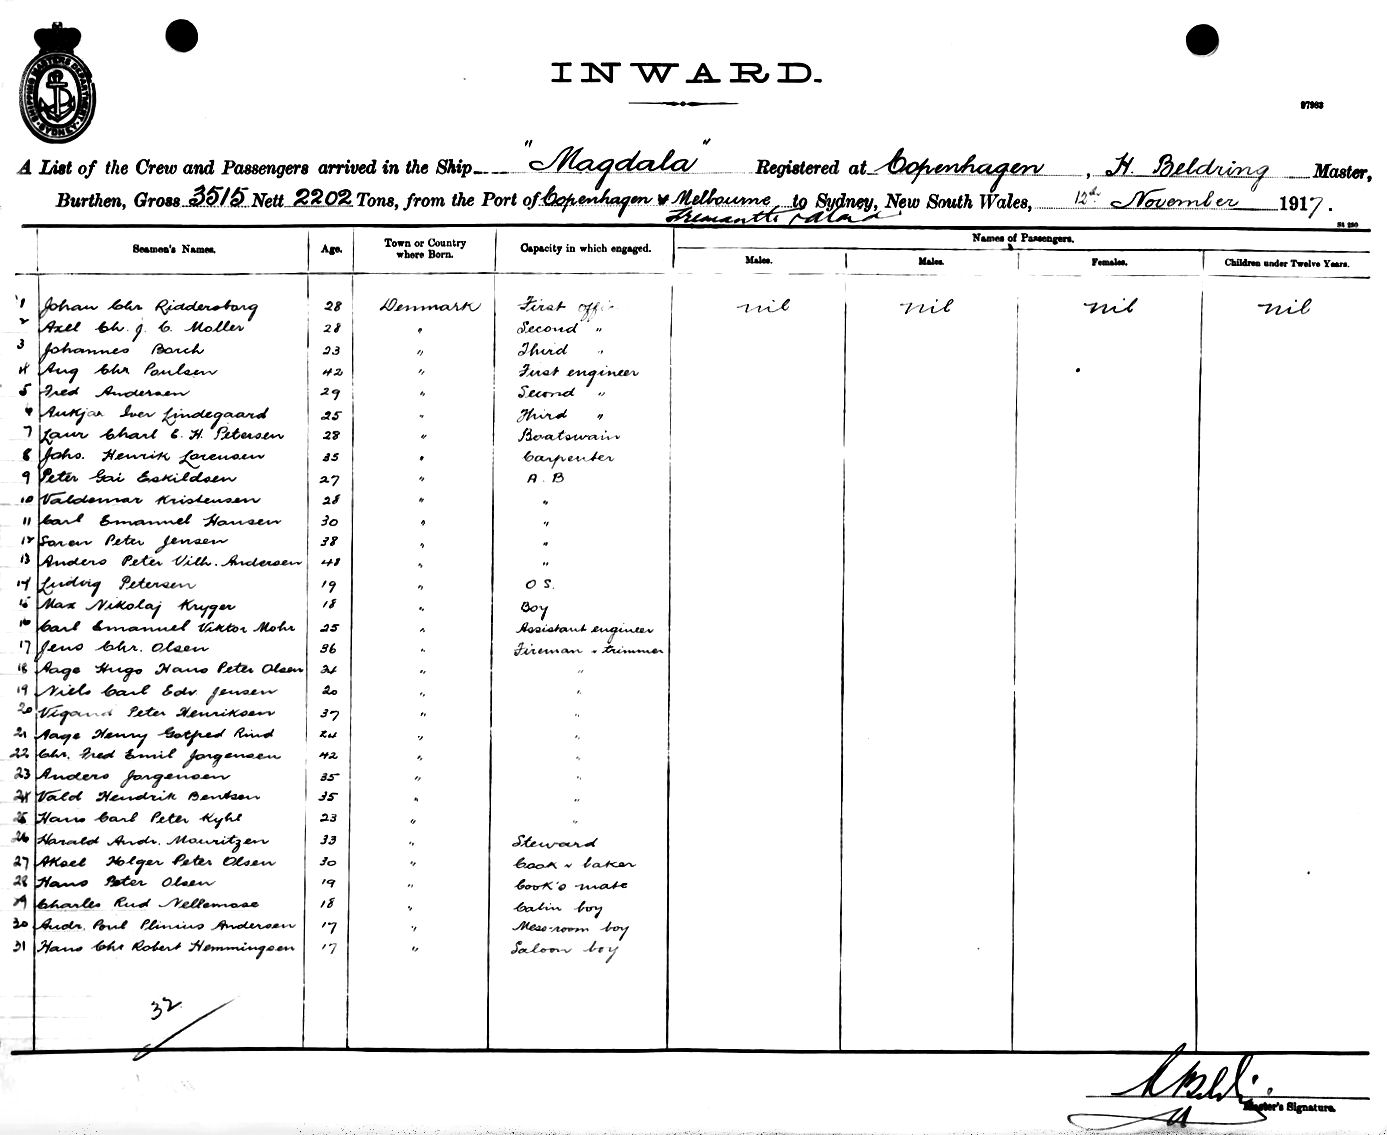 SHIPPING MASTERS DEPARTMENT
SYDNEY
INWARD.
97963
A List of the Crew and Passengers arrived in the Ship "Magdala" Registered at Copenhagen, H. Beldring Master,
Burthen, Gross 3515 Nett 2202 Tons, from the Port of Copenhagen & Melbourne to Sydney, New South Wales, 12th November 1917.
Fremantle
Seamen's Names. Age. Town or Country where Born. Capacity in which engaged. Names of Passengers.
Males. Males. Females. Children under Twelve Years.
1 Johan Chr Riddersborg 28 Denmark First nil nil nil nil
2 Axel Ch. J. C. Moller 28 " Second "
3 Johannes Borch 23 " Third "
4 Aug Chr Paulsen 42 " First engineer
5 Fred Andersen 29 " Second "
6 Iver Lindegaard 25 " Third "
7 Laur Charl E. H. Petersen 28 " Boatswain
8 Johs. Henrik Lorensen 35 " Carpenter
9 Peter Gai Eskildsen 27 " A.B
10 Valdemar Kristensen 28 " "
11 Carl Emanuel Hansen 30 " "
12 Soren Peter Jensen 38 " "
13 Anders Peter Vilh. Andersen 48 " "
14 Ludvig Petersen 19 " O S.
15 Max Nikolaj Kryger 18 " Boy
16 Carl Emanuel Viktor Mohr 25 " Assistant engineer
17 Jens Chr. Olsen 36 " Fireman & trimmer
18 Aage Hugo Hans Peter Olsen " "
19 Niels Carl Edv Jensen 20 " "
20 Vigand Peter Henriksen 37 " "
21 Aage Henry Gotfred Rind 24 " "
22 Chr. Fred Emil Jorgensen 42 " "
23 Anders Jorgensen 35 " "
24 Vald Hendrik Bentsen 35 " "
25 Hans Carl Peter Kyhl 23 " "
26 Harald Andr. Mouritzen 33 " Steward
27 Aksel Holger Peter Olsen 30 " Cook & baker
28 Hans Peter Olsen 19 " Cook's mate
29 Charles Rud Nellemose 18 " Cabin boy
30 Andr. Poul Plinius Andersen 17 " Mess-room boy
31 Hans Chr Robert Hemmingsen 17 " Saloon boy
32
Master's Signature.